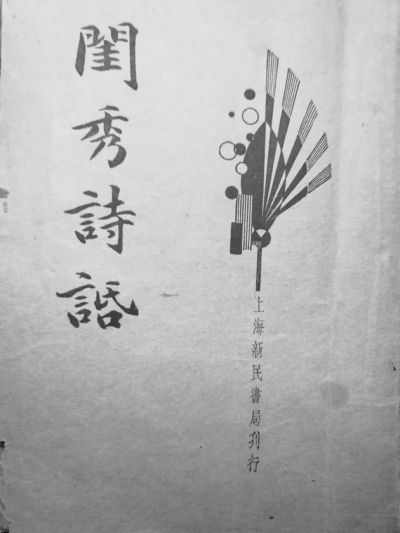 閨秀詩話
上海新民書局刋行